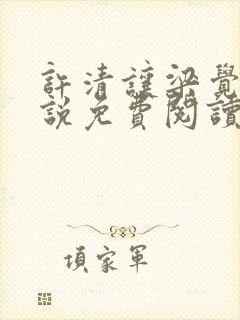 許清謹梁覺
說免費閱讀
項家軍